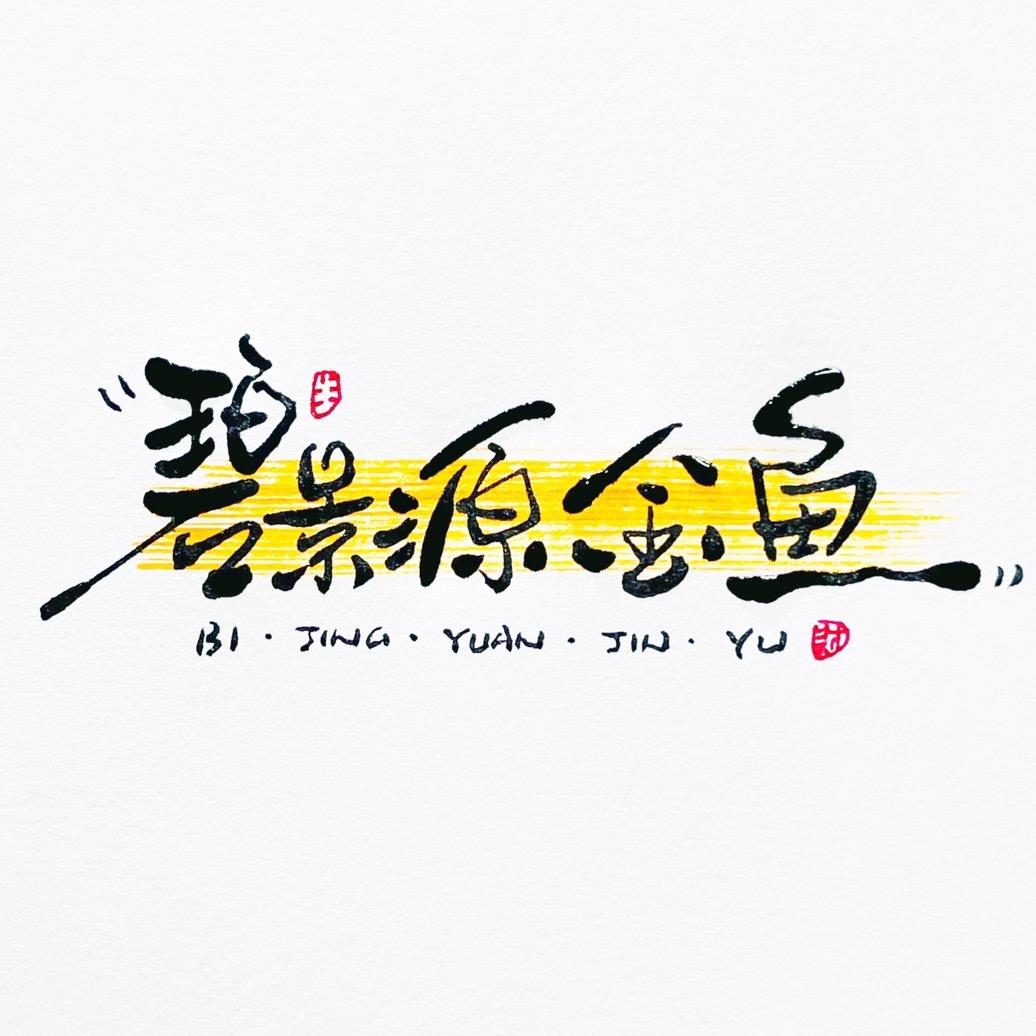 “碧景源金鱼”
BI · JING · YUAN · JIN · YU